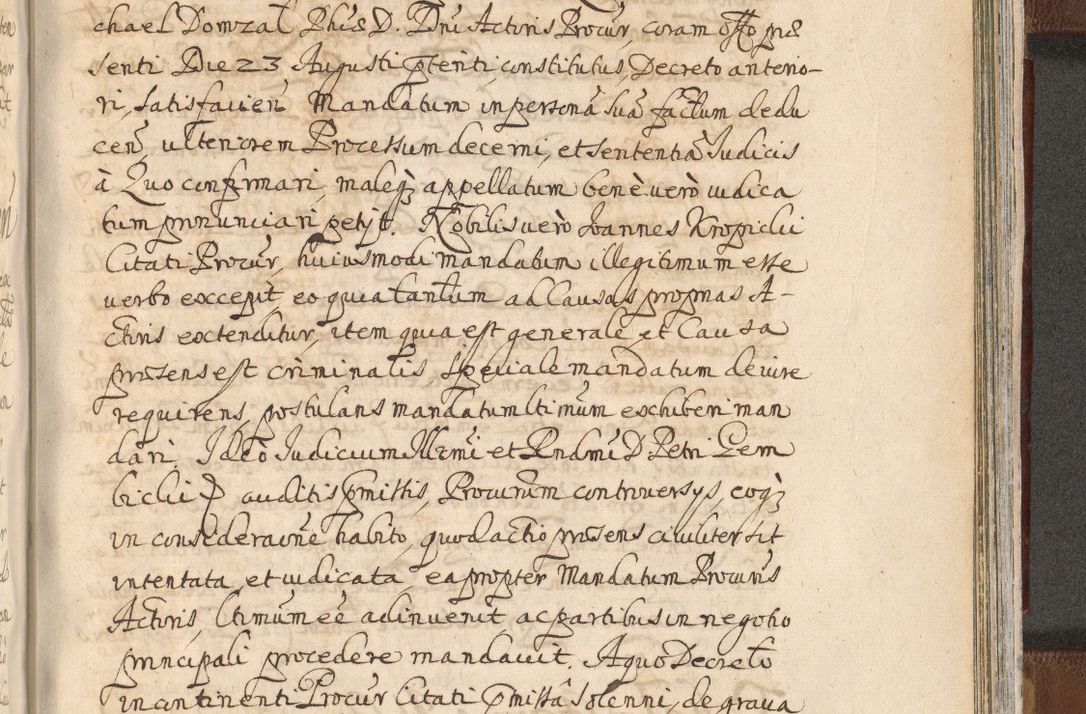 chael Domzal Phiæ D. Dni Actoris Procur, coram offo præ
senti Die 23 Augusti pñti, constitutus, Decreto anterio-
ri, satisfacień Mandatum in persona sua factum dedu
ceń, ulteriorem Processum decerni, et sententiã Iudicis
à Quo confirmari, maleq3 appellatum benè verò iudica
tum pronunciari petijt. Nobilis verò Ioannes Kropidi
Citati Procur, huiusmodi mandatum illegitimum esse
verbo excepit eo quia tantum ad Causas proprias A-
ctoris extenditur, item quia est generale, et Causa
præsens est criminalis speciale mandatum de iure
requirens, postulans mandatum ltimum exhiberi man
dari. Ideo Iudicium Illrmi et Rndmi D Petri Gem
biclii auditis pmissis, Procurum controversys, eoq3
in consideraone habito, quod actio præsens civiliter sit
intentata, et iudicata eapropter Mandatum Procuris
Actoris, ltimum eẽ adinvenit ac partibus in negotio
principali procedere mandavit. A quo Decreto
in continenti Procur Citati pmissa solenni, de grava